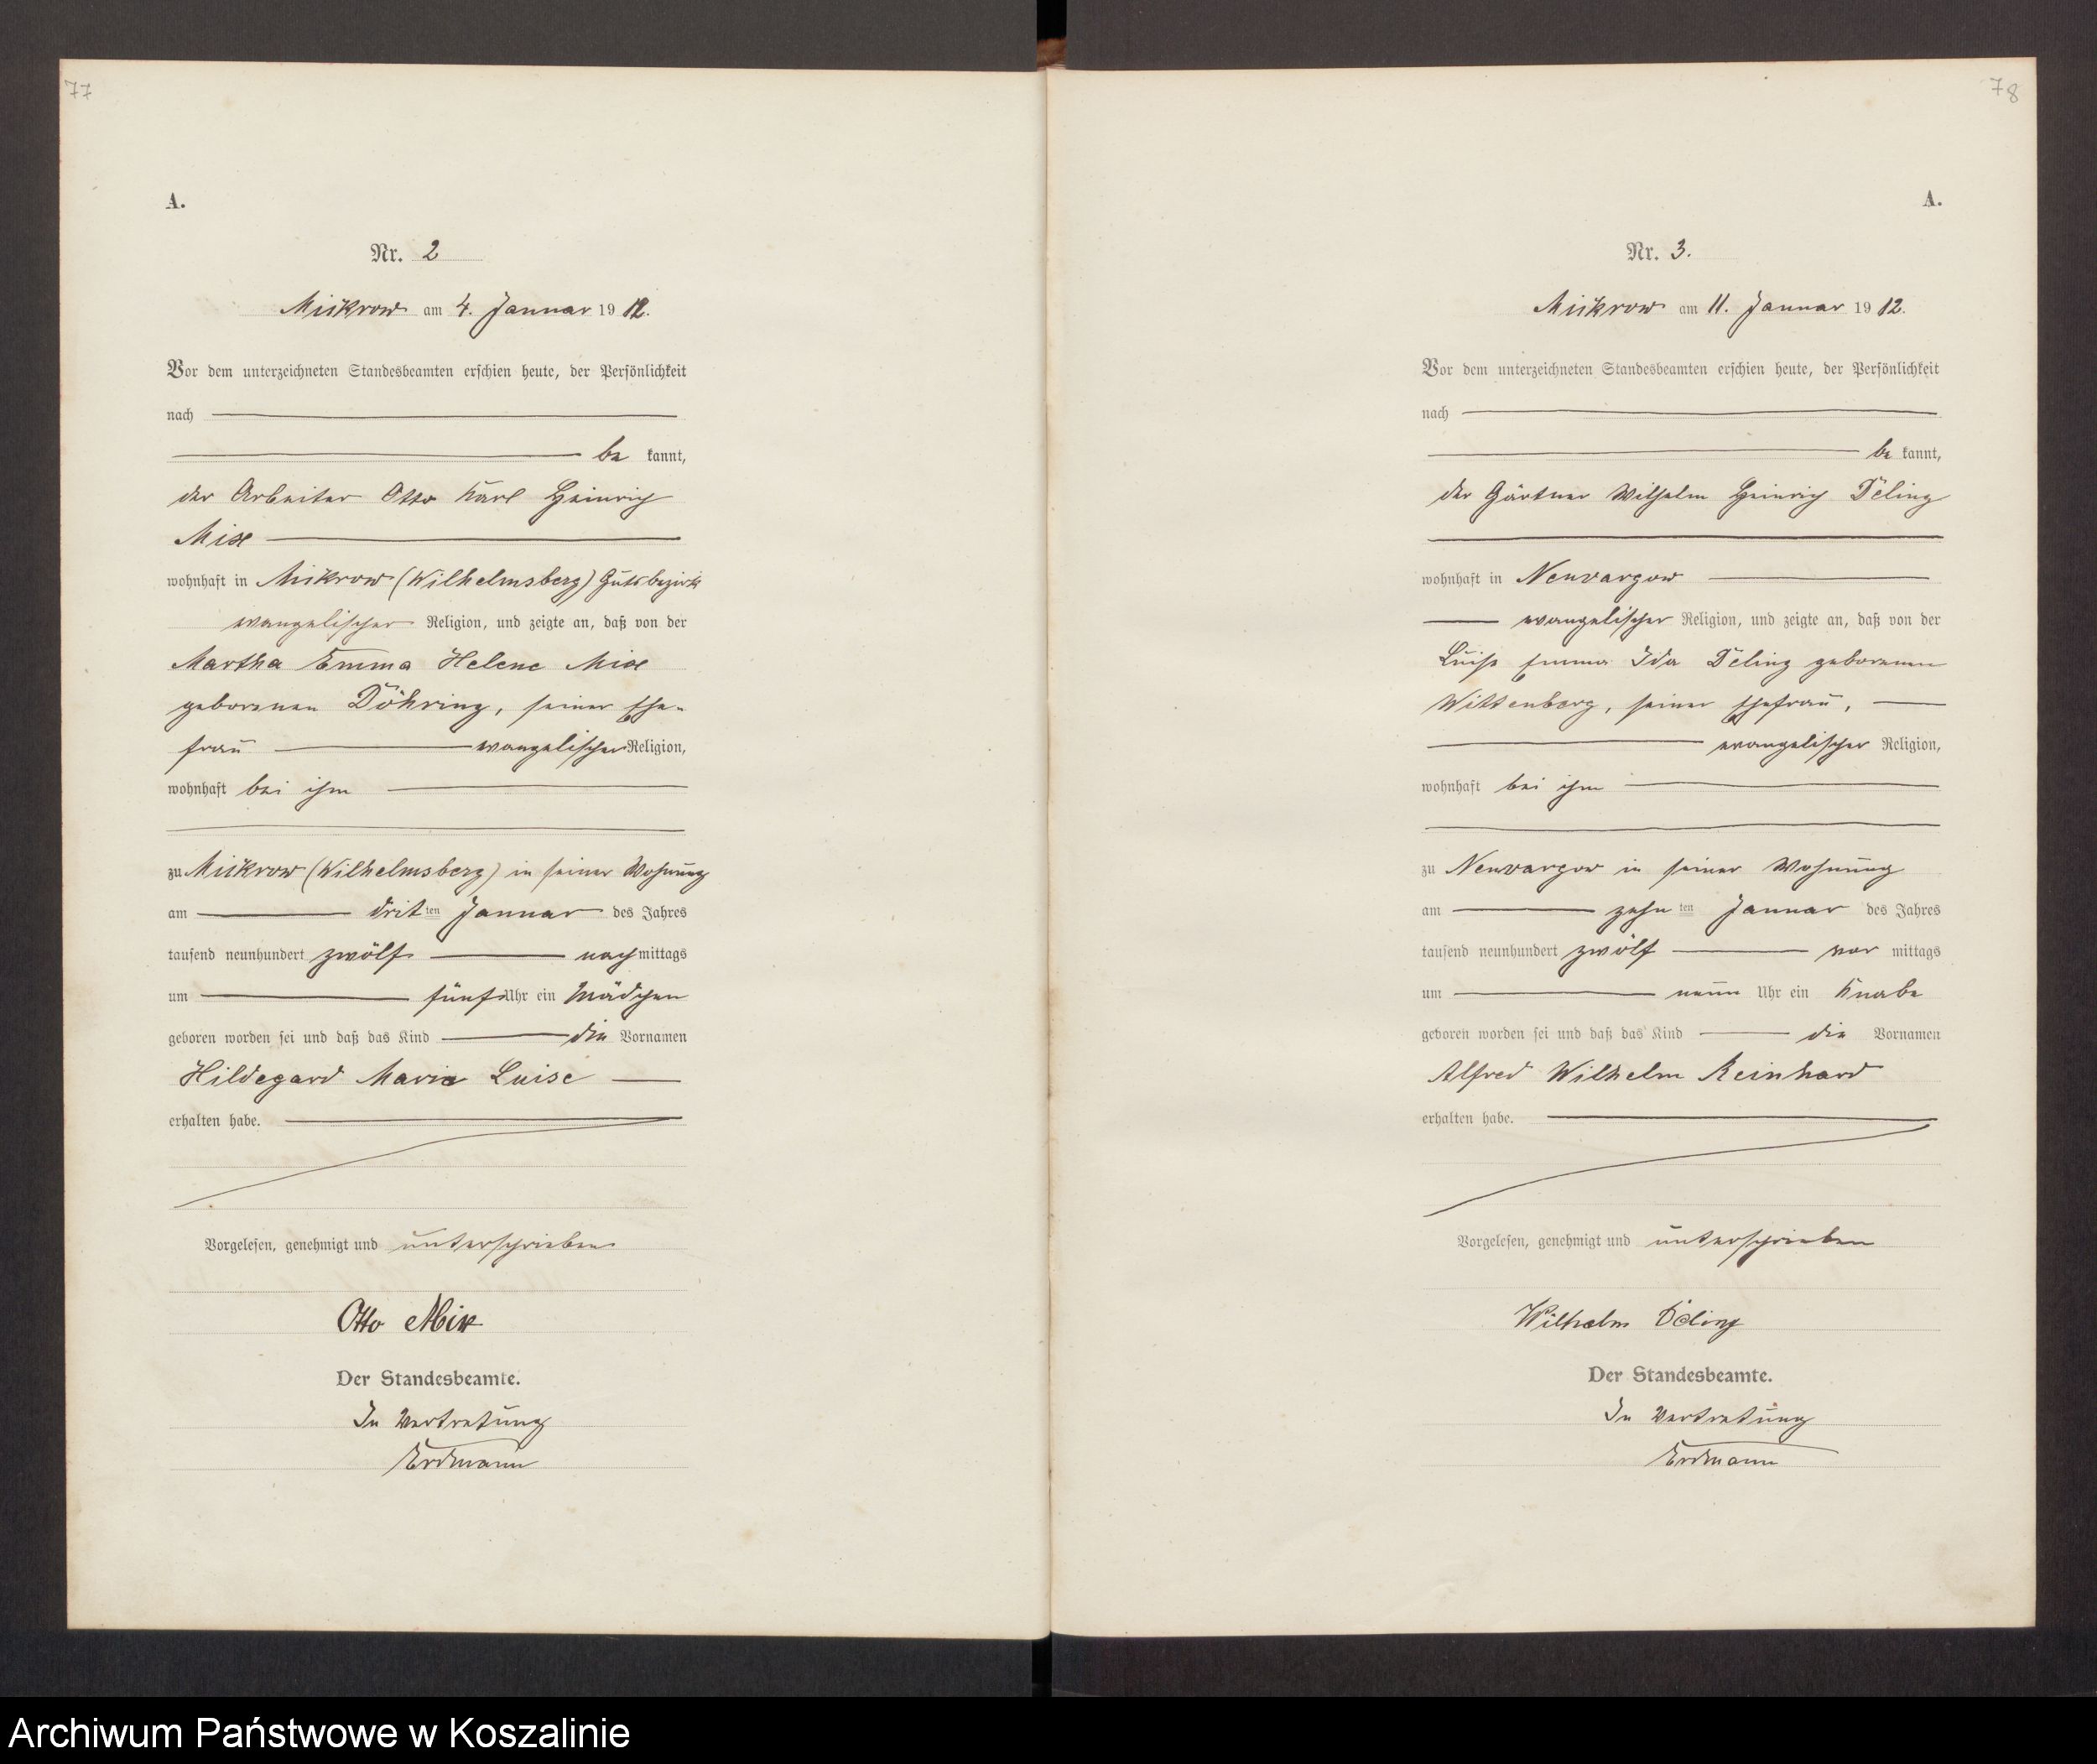 77
A.
Nr. 2
Mickrow am 4. Januar 1912.
Vor dem unterzeichneten Standesbeamten erschien heute, der Persönlichkeit
nach
be kannt,
der Arbeiter Otto Karl Heinrich
Mix
wohnhaft in Mikrow (Wilhelmsberg) Gutsbezirk
evangelischer Religion, und zeigte an, daß von der
Martha Emma Helene Mix
geborenen Döhring, seiner Ehe-
frau evangelischer Religion,
wohnhaft bei ihm
zu Mickrow (Wilhelmsberg) in seiner Wohnung
am dritten Januar des Jahres
tausend neunhundert zwölf nachmittags
um fünf Uhr ein Mädchen
geboren worden sei und daß das Kind die Vornamen
Hildegard Marie Luise
erhalten habe.
Vorgelesen, genehmigt und unterschrieben
Otto Mix
Der Standesbeamte.
In Vertretung
Erdmann
78
A.
Nr. 3.
Mickrow am 11. Januar 1912.
Vor dem unterzeichneten Standesbeamten erschien heute, der Persönlichkeit
nach
be kannt,
der Gärtner Wilhelm Heinrich Döling
wohnhaft in Neuvargow
evangelischer Religion, und zeigte an, daß von der
Luise Emma Ida Döling geborenen
Wittenberg, seiner Ehefrau,
evangelischer Religion,
wohnhaft bei ihm
zu Neuvargow in seiner Wohnung
am zehnten Januar des Jahres
tausend neunhundert zwölf vor mittags
um neun Uhr ein Knabe
geboren worden sei und daß das Kind die Vornamen
Alfred Wilhelm Reinhard
erhalten habe.
Vorgelesen, genehmigt und unterschrieben
Wilhelm Döling
Der Standesbeamte.
In Vertretung
Erdmann
Archiwum Państwowe w Koszalinie